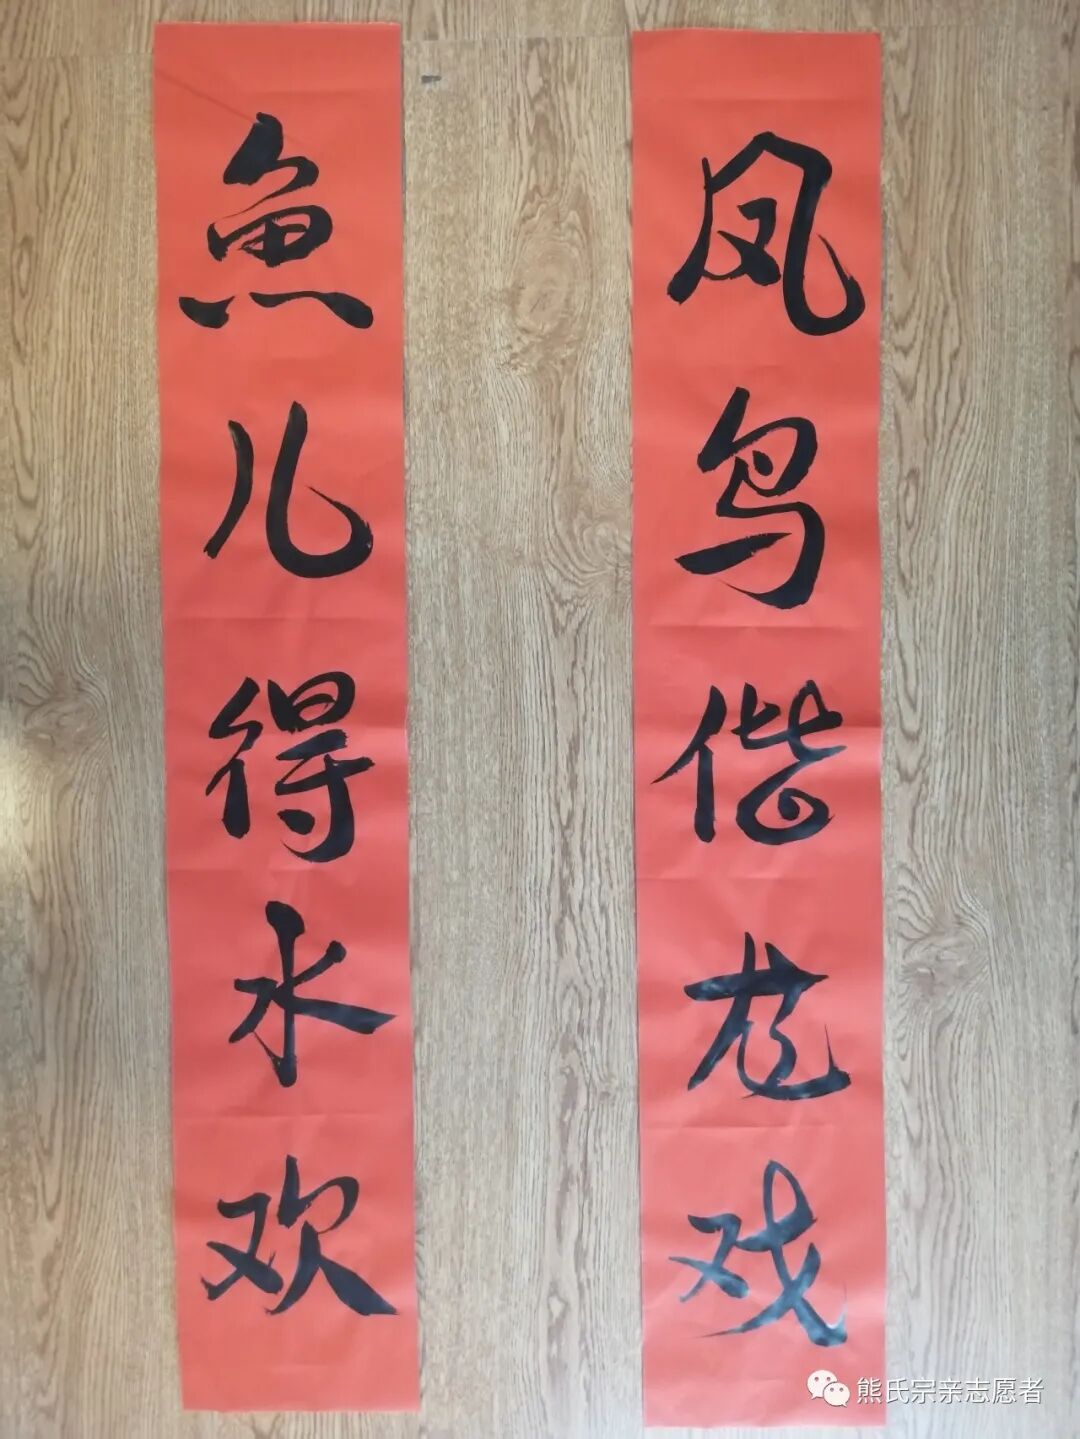 凤鸟偕龙戏
鱼儿得水欢
熊氏宗亲志愿者